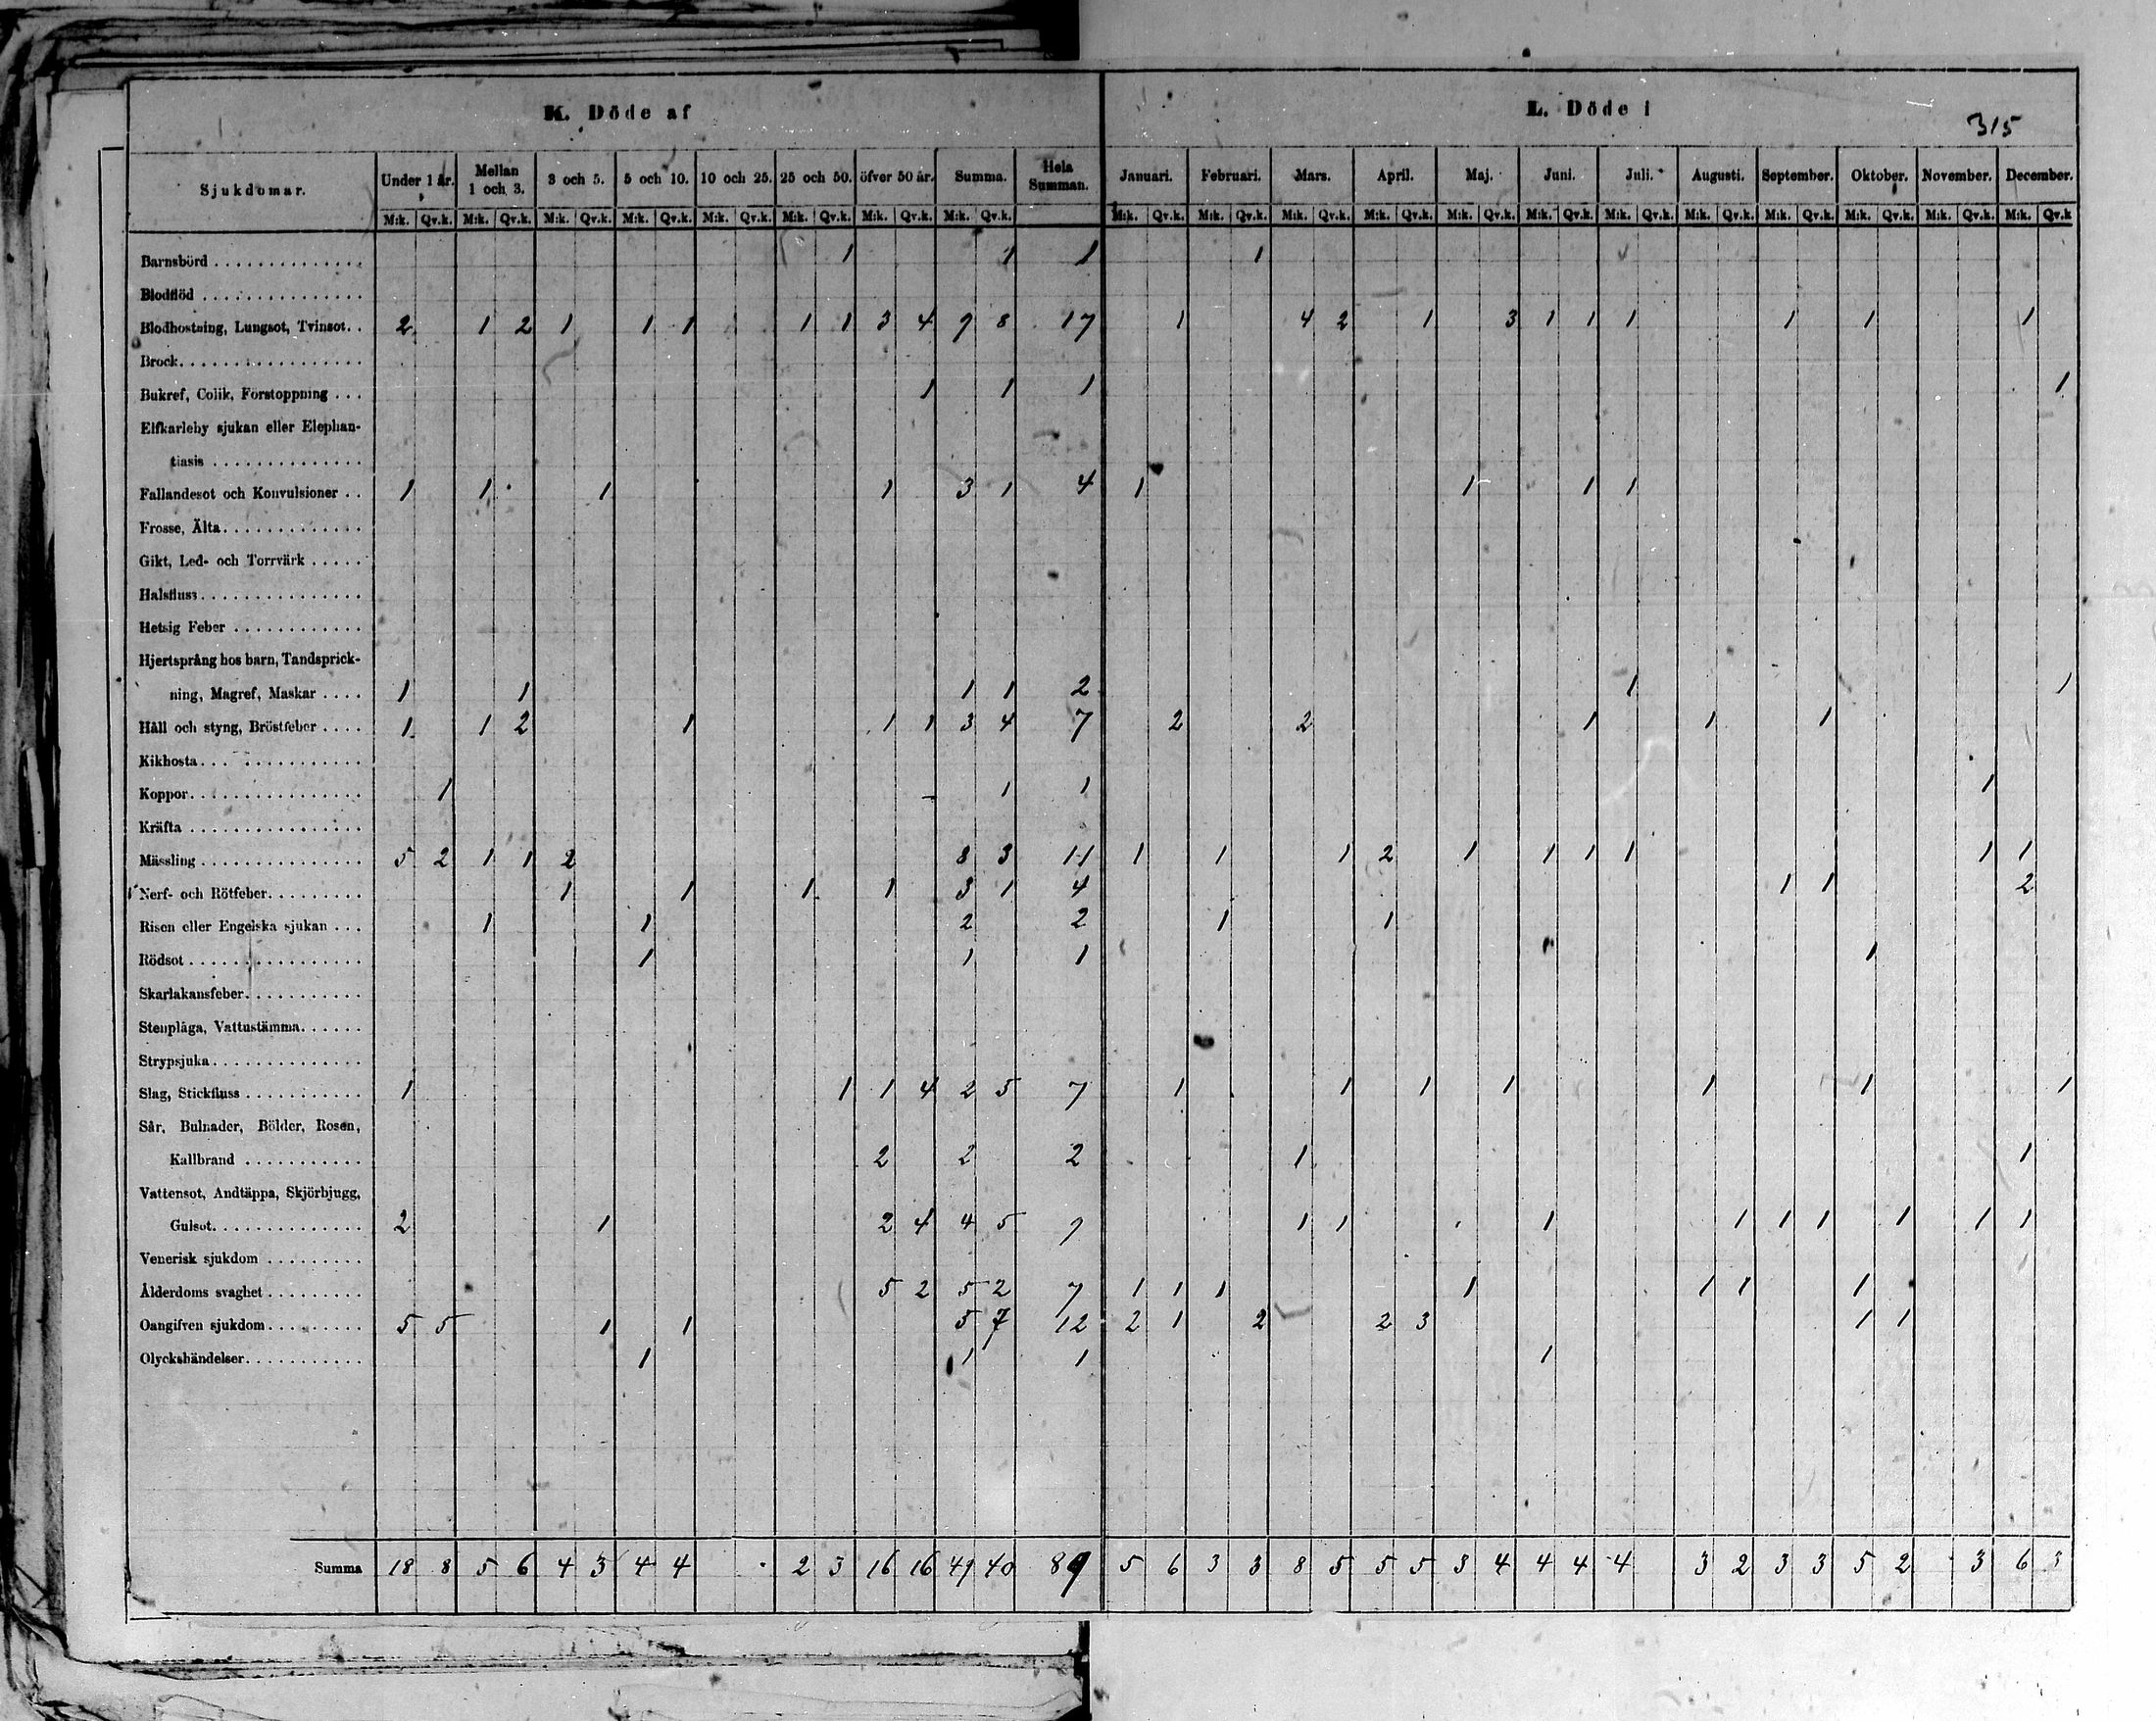 K. Döde af L. Döde i
315
Sjukdomar. Under 1 år. Mellan 1 och 3. 3 och 5. 5 och 10. 10 och 25. 25 och 50. öfver 50 år. Summa. Hela Summan. Januari. Februari. Mars. April. Maj. Juni. Juli. Augusti. September. Oktober. November. December.
M:k. Qv.k. M:k. Qv.k. M:k. Qv.k. M:k. Qv.k. M:k. Qv.k. M:k. Qv.k. M:k. Qv.k. M:k. Qv.k. M:k. Qv.k. M:k. Qv.k. M:k. Qv.k. M:k. Qv.k. M:k. Qv.k. M:k. Qv.k. M:k. Qv.k. M:k. Qv.k. M:k. Qv.k. M:k. Qv.k. M:k. Qv.k. M:k. Qv.k
Barnsbörd . . . . . . . . . . . . . . 1 1 1 1
Blodflöd . . . . . . . . . . . . . . .
Blodhostning, Lungsot, Tvinsot. . 2 1 2 1 1 1 1 1 3 4 9 8 17 1 4 2 1 3 1 1 1 1 1 1
Brock. . . . . . . . . . . . . . . . .
Bukref, Colik, Förstoppning . . . 1 1 1 1
Elfkarleby sjukan eller Elephan-
tiasis . . . . . . . . . . . . . .
Fallandesot och Konvulsioner . . 1 1 1 1 3 1 4 1 1 1 1
Frosse, Älta. . . . . . . . . . . . .
Gikt, Led- och Torrvärk . . . . .
Halsfluss. . . . . . . . . . . . . . .
Hetsig Feber . . . . . . . . . . . .
Hjertsprång hos barn, Tandsprick-
ning, Magref, Maskar . . . . 1 1 1 1 2 1 1
Håll och styng, Bröstfeber . . . . 1 1 2 1 1 1 3 4 7 2 2 1 1 1
Kikhosta. . . . . . . . . . . . . . .
Koppor. . . . . . . . . . . . . . . . 1 1 1 1
Kräfta . . . . . . . . . . . . . . . .
Mässling . . . . . . . . . . . . . . . 5 2 1 1 2 8 3 11 1 1 1 2 1 1 1 1 1 1
Nerf- och Rötfeber. . . . . . . . . 1 1 1 1 3 1 4 1 1 2
Risen eller Engelska sjukan . . . 1 1 2 2 1 1
Rödsot . . . . . . . . . . . . . . . . 1 1 1 1
Skarlakansfeber. . . . . . . . . . .
Stenplåga, Vattustämma. . . . . .
Strypsjuka. . . . . . . . . . . . . .
Slag, Stickfluss . . . . . . . . . . . 1 1 1 4 2 5 7 1 1 1 1 1 1 1
Sår, Bulnader, Bölder, Rosen,
Kallbrand . . . . . . . . . . . 2 2 2 1 1
Vattensot, Andtäppa, Skjörbjugg,
Gulsot. . . . . . . . . . . . . . 2 1 2 4 4 5 9 1 1 1 1 1 1 1 1 1
Venerisk sjukdom . . . . . . . . .
Ålderdoms svaghet . . . . . . . . . 5 2 5 2 7 1 1 1 1 1 1 1
Oangifven sjukdom. . . . . . . . . 5 5 1 1 5 7 12 2 1 2 2 3 1 1
Olyckshändelser. . . . . . . . . . . 1 1 1 1
Summa 18 8 5 6 4 3 4 4 2 3 16 16 49 40 89 5 6 3 3 8 5 5 5 3 4 4 4 4 3 2 3 3 5 2 3 6 3